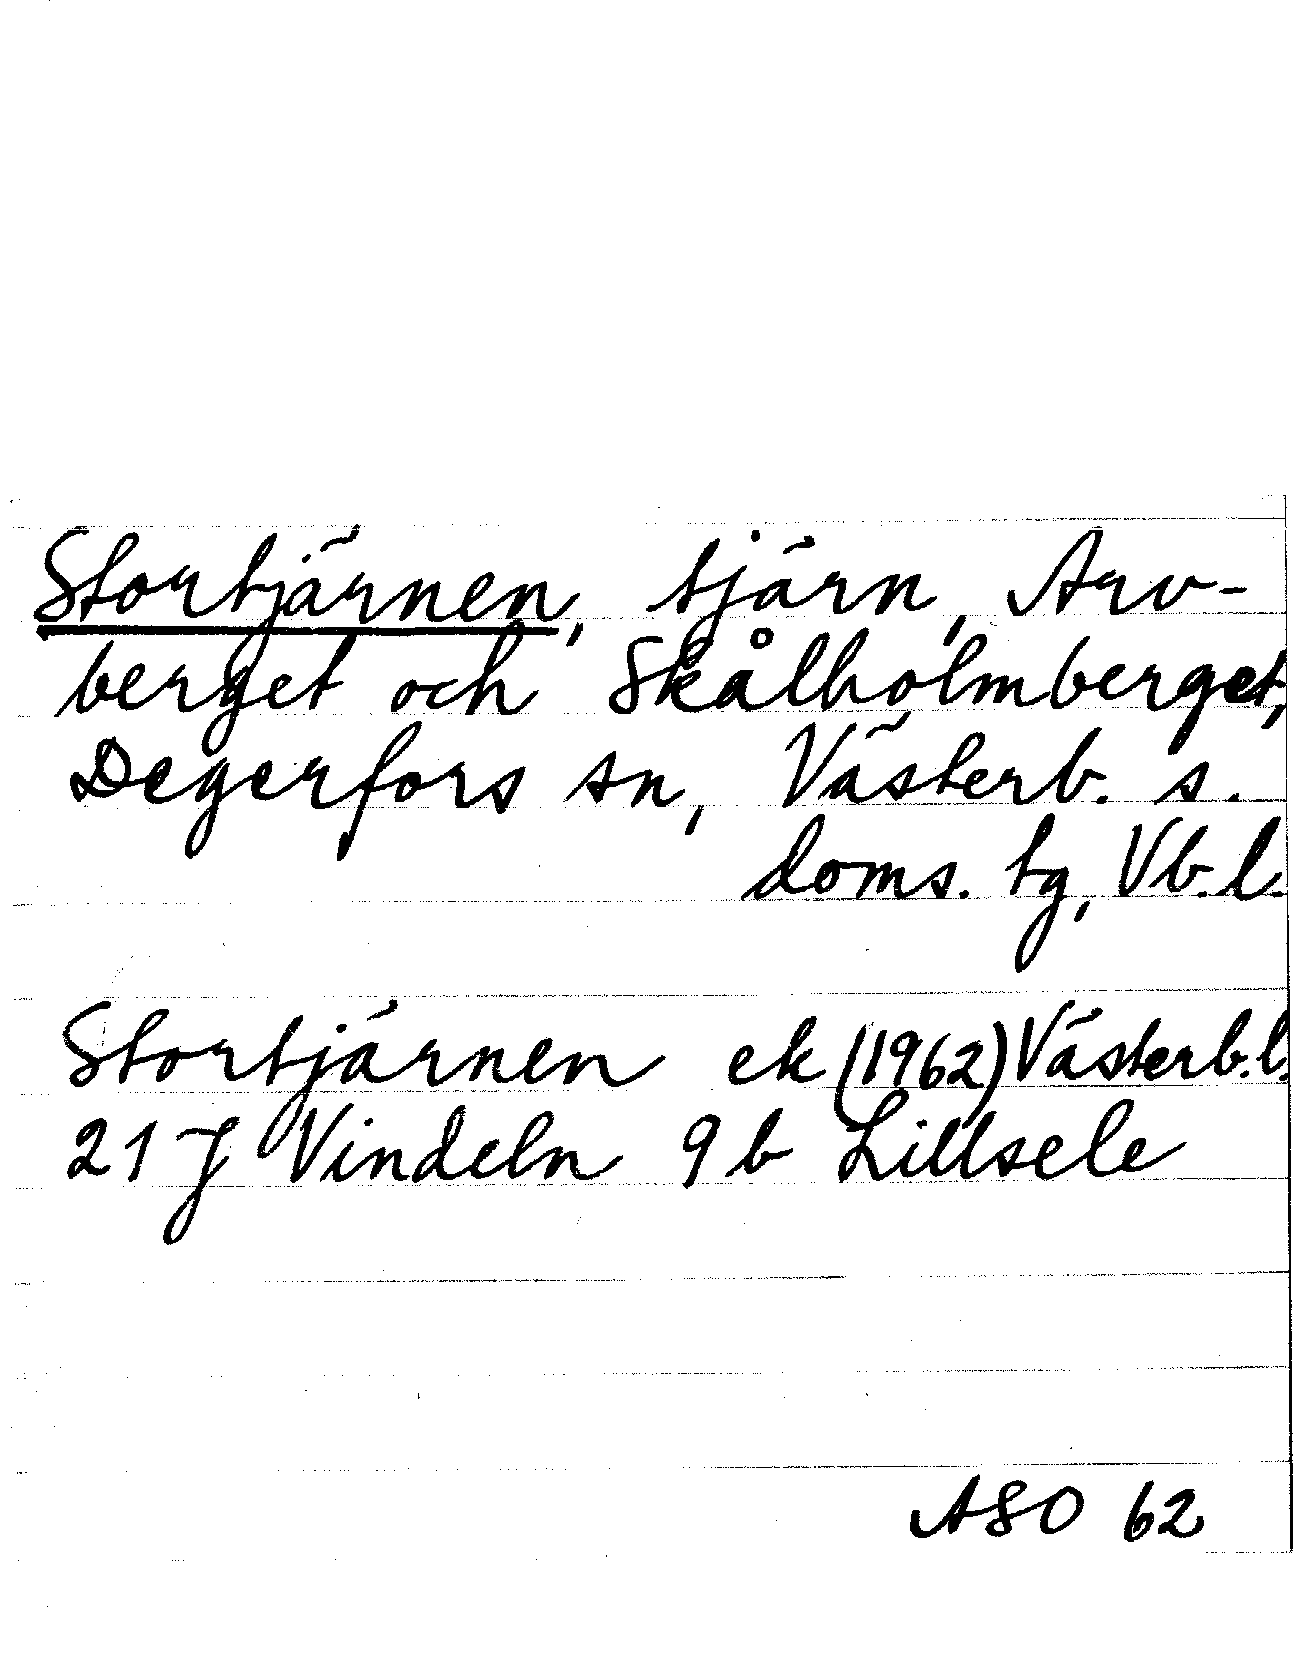 Stortjärnen, tjärn, Arv-
berget och Skålholmberget,
Degerfors sn, Västerb. s.
doms. tg, Vb.l.
Stortjärnen ek (1962) Västerb.l.
21 J Vindeln 9 b Lillsele
ASO 62